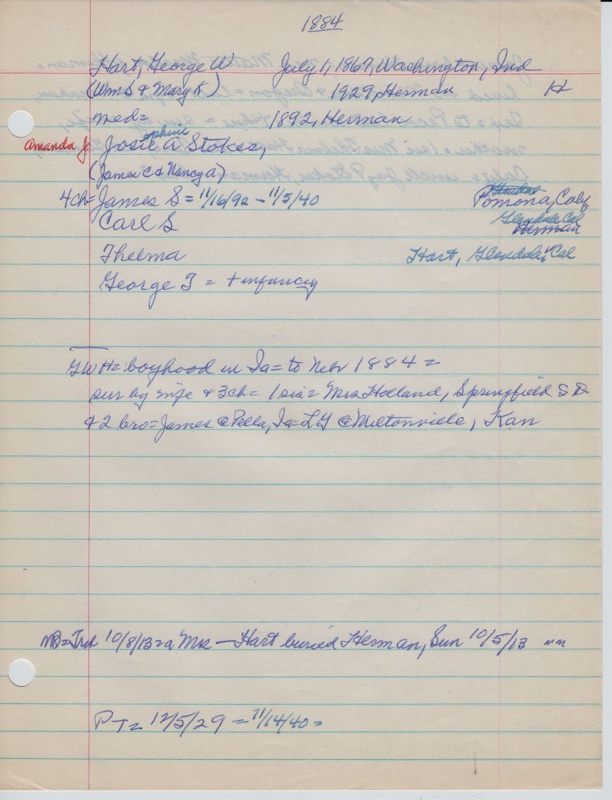 1884
Hart, George W July 1, 1869, Washington, Ind
(Wm S & Mary K) 1929, Herman H
med= 1892, Herman
Amanda J Josephine A Stokes,
(James C & Nancy A)
4ch= James S = 11/16/92 - 11/5/40 Pomona, Calif
Carl S Glendale Cal Herman
Thelma Hart, Glendale, Cal
George T = + infancy
GWH= boyhood in Ia= to Nebr 1884=
sur by wife & 3ch= 1 sis= Mrs Holland, Springfield S D
& 2 bro= James @ Pella, Ia= LY @ Miltonville, Kan
NB= Trib 10/8/13= a Mrs — Hart buried Herman, Sun 10/5/13
PT= 12/5/29 = 11/14/40=